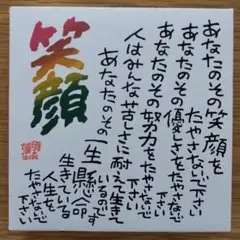 笑顔
あなたのその笑顔を
たやさないで下さい
あなたのその優しさをたやさないで
下さい
あなたのその努力をたやさないで
下さい
人はみんな苦しさに耐えて生きて
いるのです
あなたのその一生懸命
生きている
人生を
たやさないで
下さい